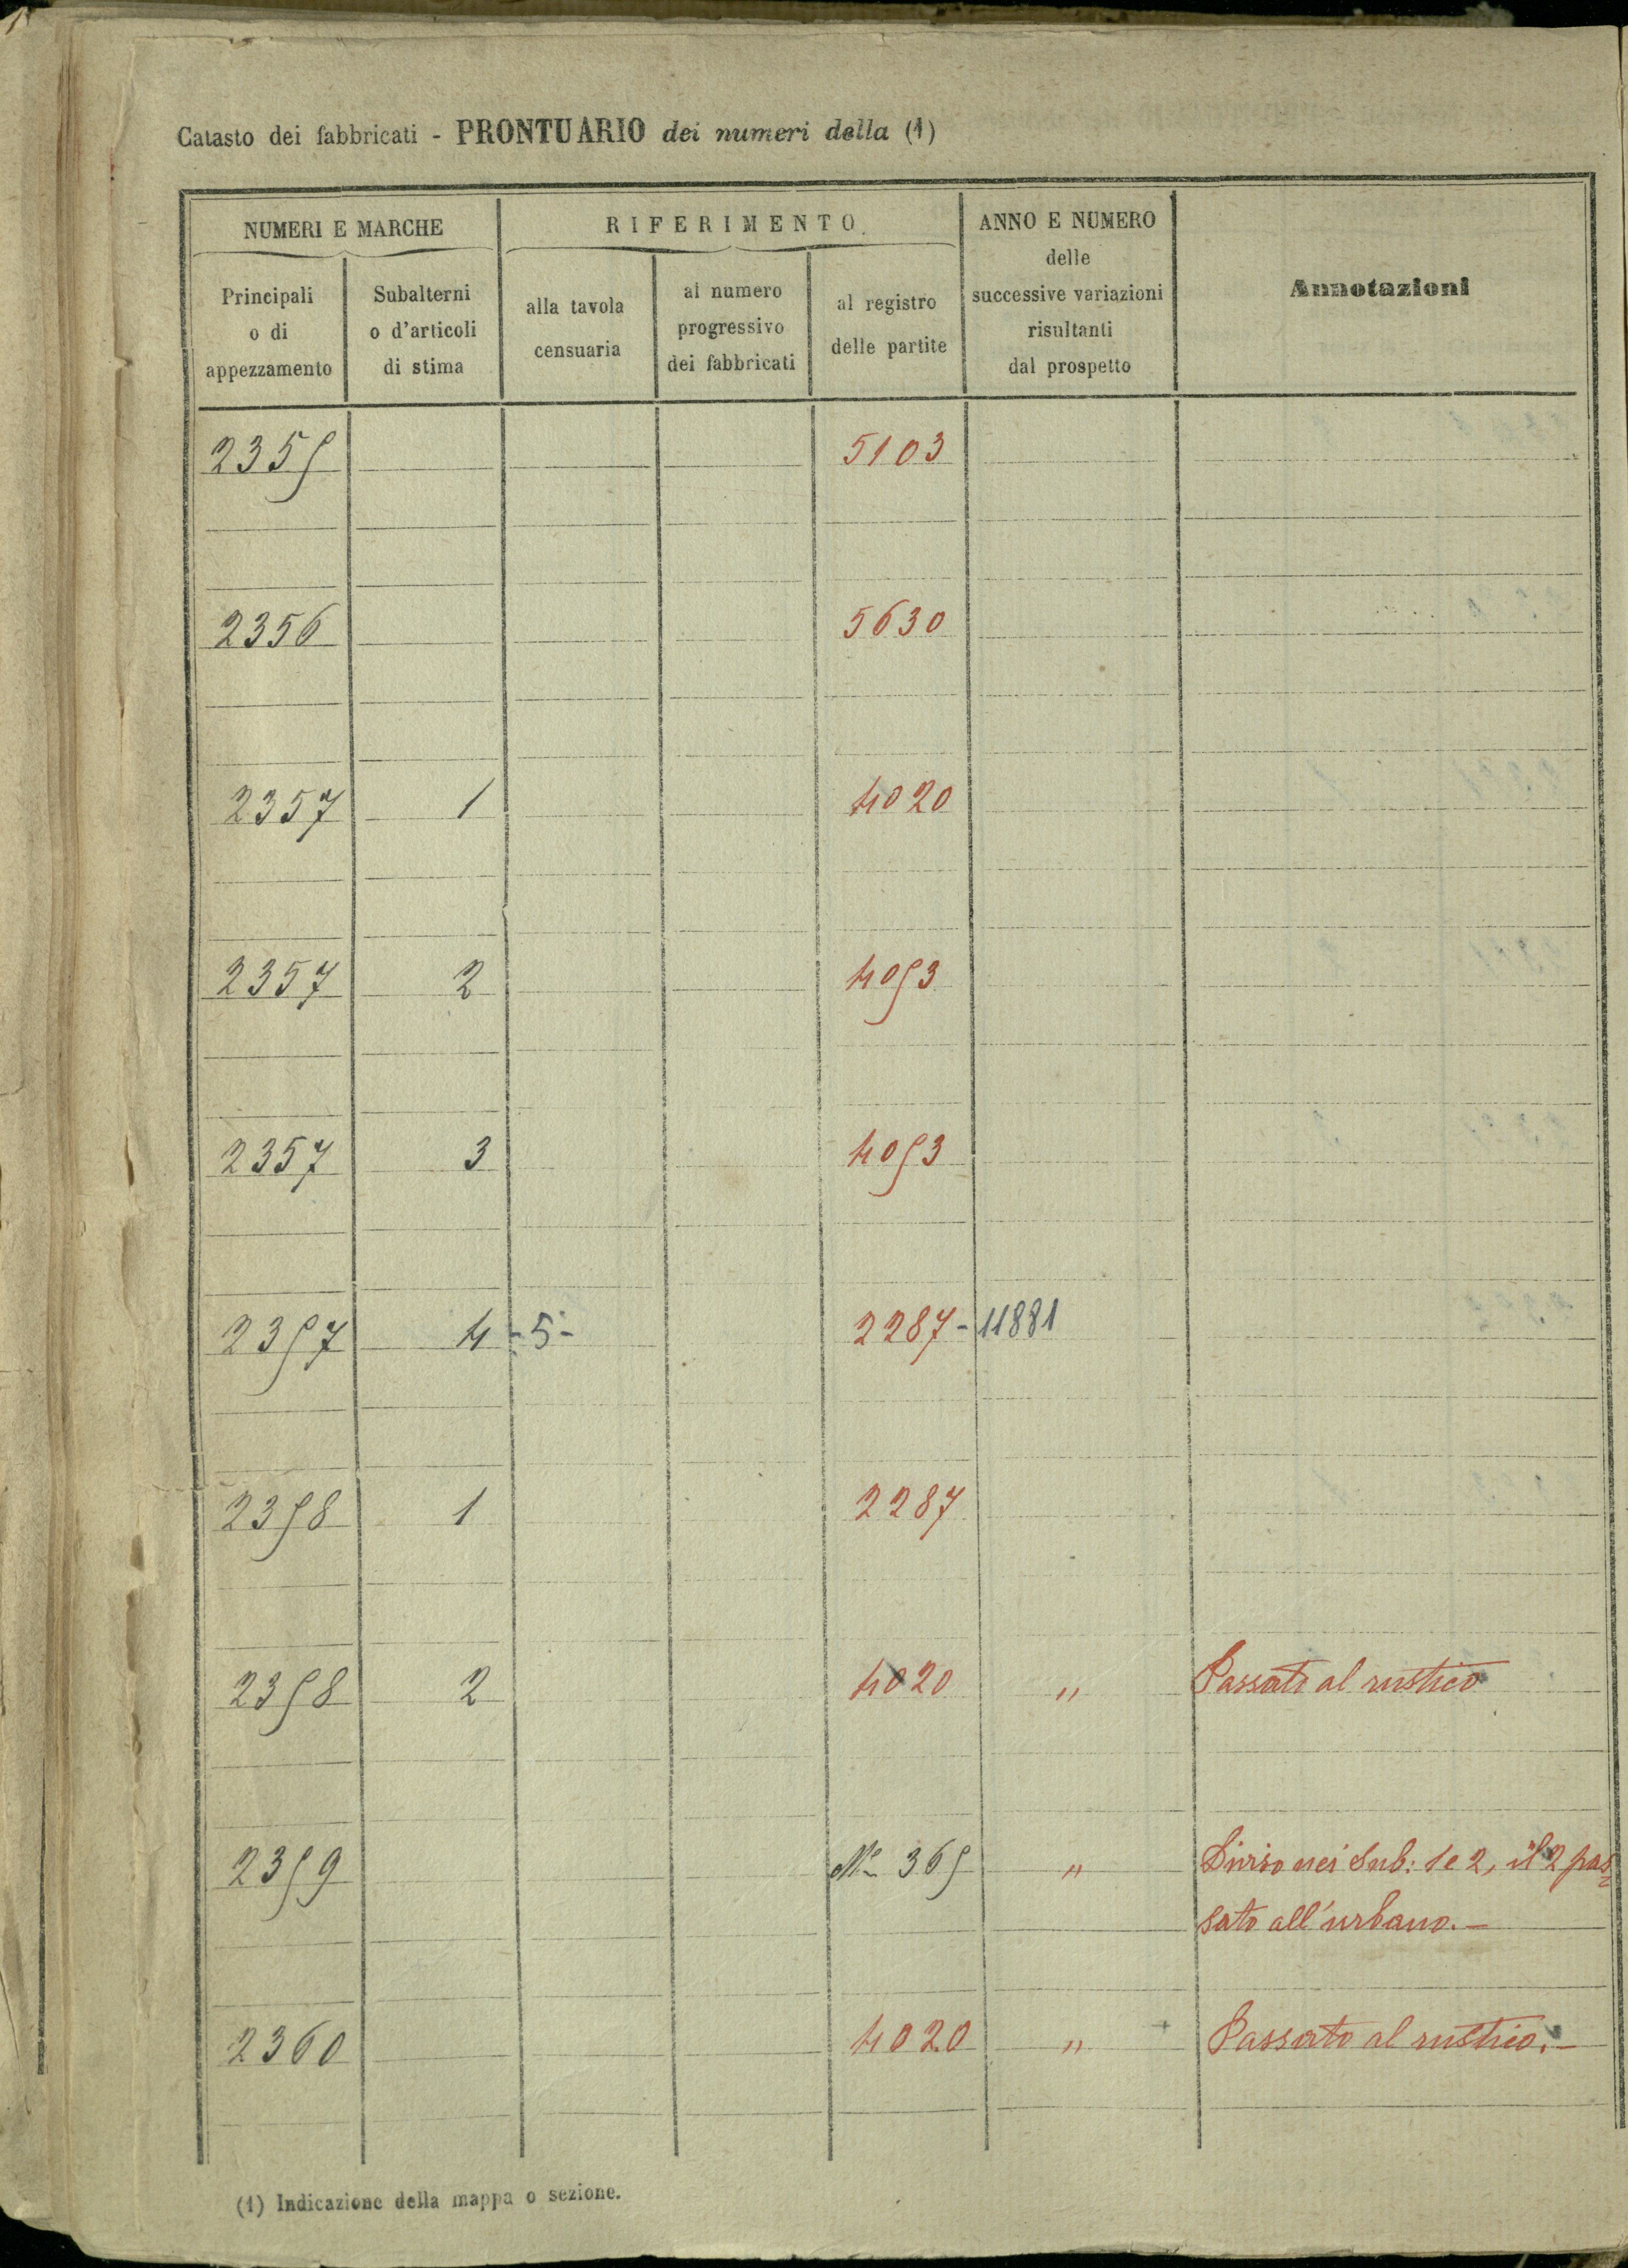 Catasto dei fabbricati - PRONTUARIO dei numeri della (1)
NUMERI E MARCHE
RIFERIMENTO
ANNO E NUMERO
delle
successive variazioni
risultanti
dal prospetto
Annotazioni
Principali
o di
appezzamento
Subalterni
o d'articoli
di stima
alla tavola
censuaria
al numero
progressivo
dei fabbricati
al registro
delle partite
2355 5103
2356 5630
2357 1 4020
2357 2 4053
2357 3 4053
2357 4 - 5 - 2287 - 11881
2358 1 2287
2358 2 4020 " Passato al rustico
2359 N° 365 " Diviso nei Sub: 1 e 2, il 2 pas
sato all'urbano. -
2360 4020 " Passato al rustico. -
(1) Indicazione della mappa o sezione.